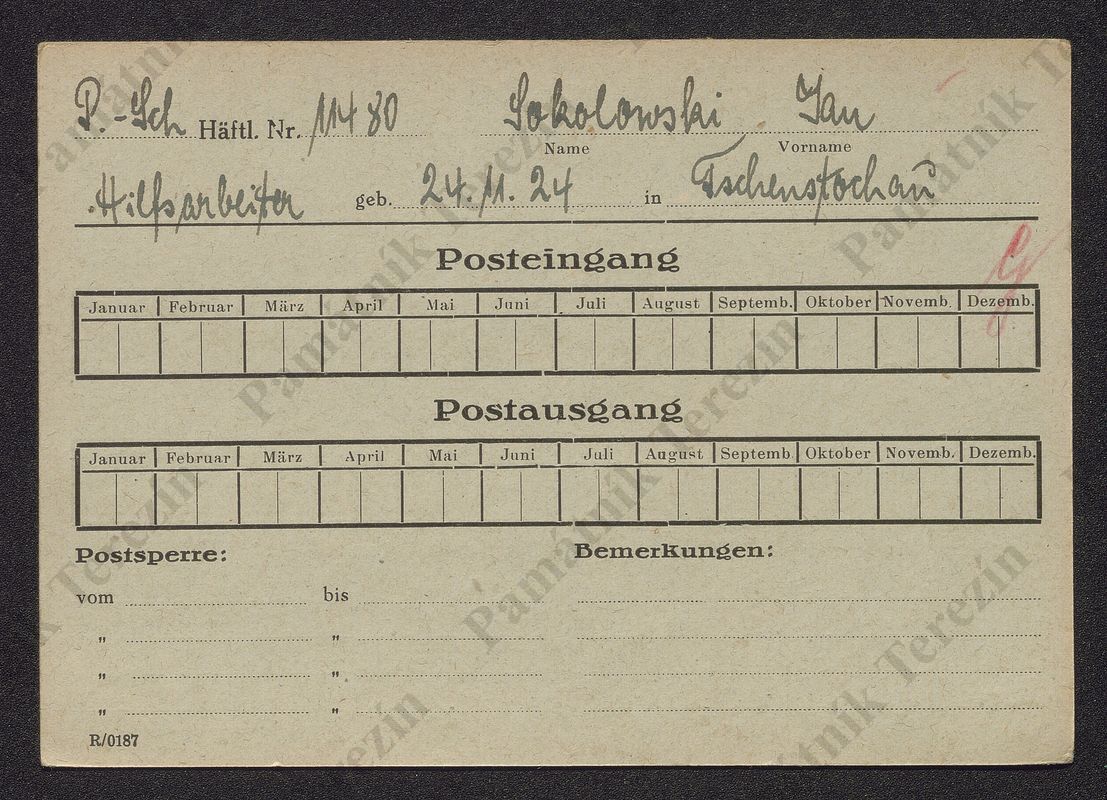 P.-Sch Häftl. Nr. 11480 Sokolowski Jan
Name Vorname
Hilfsarbeiter geb. 24. 11. 24 in Tschenstochau
Posteingang
Januar Februar März April Mai Juni Juli August Septemb. Oktober Novemb. Dezemb.
Postausgang
Januar Februar März April Mai Juni Juli August Septemb. Oktober Novemb. Dezemb.
Postsperre: Bemerkungen:
vom bis
" "
" "
" "
R/0187
Památník Terezín